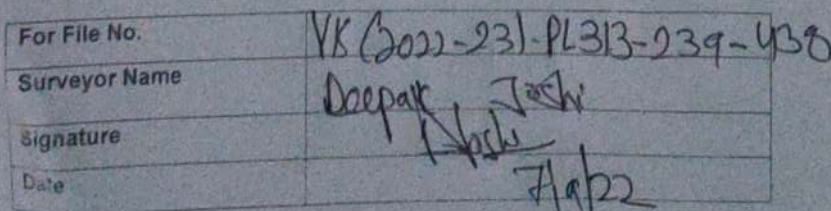 For File No. VK (2022-23)-PL313-239-438
Surveyor Name Deepak Joshi
Signature DJoshi
Date 7/9/22